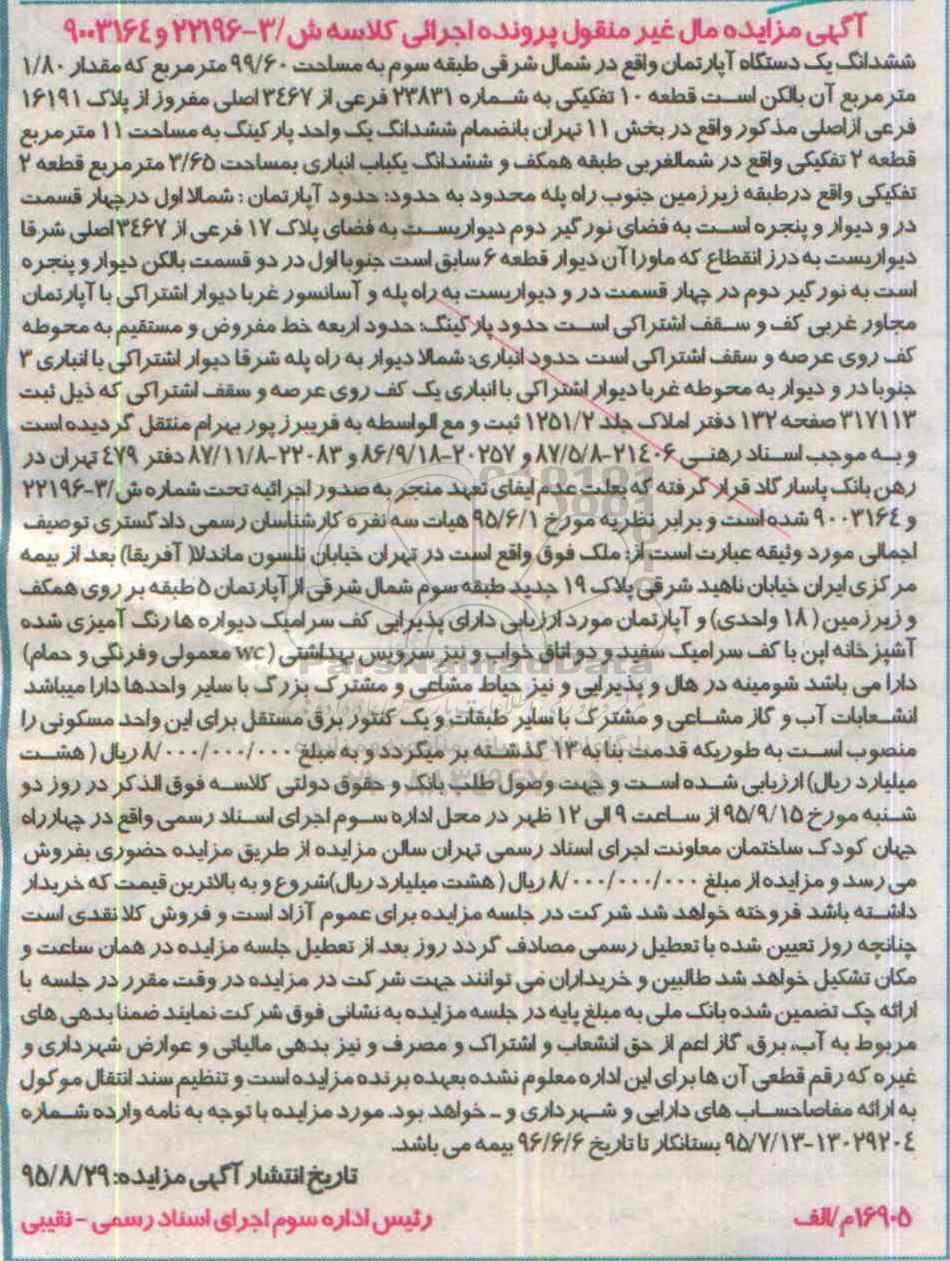 آگهی مزایده مال غیر منقول پرونده اجرائی کلاسه ش/۳-۲۲۱۹۶ و ۹۰۰۳۱۶۴
ششدانگ یک دستگاه آپارتمان واقع در شمال شرقی طبقه سوم به مساحت ۹۹/۶۰ متر مربع که مقدار ۱/۸۰
متر مربع آن بالکن است قطعه ۱۰ تفکیکی به شماره ۲۳۸۳۱ فرعی از ۳۴۶۷ اصلی مفروز از پلاک ۱۶۱۹۱
فرعی از اصلی مذکور واقع در بخش ۱۱ تهران بانضمام ششدانگ یک واحد پارکینگ به مساحت ۱۱ متر مربع
قطعه ۲ تفکیکی واقع در شمالغربی طبقه همکف و ششدانگ یکباب انباری بمساحت ۳/۶۵ متر مربع قطعه ۲
تفکیکی واقع در طبقه زیرزمین جنوب راه پله محدود به حدود: حدود آپارتمان : شمالا اول در چهار قسمت
در و دیوار و پنجره است به فضای نورگیر دوم دیواریست به فضای پلاک ۱۷ فرعی از ۳۴۶۷ اصلی شرقا
دیواریست به درز انقطاع که ماورا آن دیوار قطعه ۶ سابق است جنوبا اول در دو قسمت بالکن دیوار و پنجره
است به نورگیر دوم در چهار قسمت در و دیواریست به راه پله و آسانسور غربا دیوار اشتراکی با آپارتمان
مجاور غربی کف و سقف اشتراکی است حدود پارکینگ: حدود اربعه خط مفروض و مستقیم به محوطه
کف روی عرصه و سقف اشتراکی است حدود انباری: شمالا دیوار به راه پله شرقا دیوار اشتراکی با انباری ۳
جنوبا در و دیوار به محوطه غربا دیوار اشتراکی با انباری یک کف روی عرصه و سقف اشتراکی که ذیل ثبت
۳۱۷۱۱۳ صفحه ۱۳۲ دفتر املاک جلد ۱۲۵۱/۲ ثبت و مع الواسطه به فریبرز پور بهرام منتقل گردیده است
و به موجب اسناد رهنی ۲۱۴۰۶-۸۷/۵/۸ و ۲۰۲۵۷-۸۶/۹/۱۸ و ۲۲۰۸۳-۸۷/۱۱/۸ دفتر ۴۷۹ تهران در
رهن بانک پاسارگاد قرار گرفته که بعلت عدم ایفای تعهد منجر به صدور اجرائیه تحت شماره ش/۳-۲۲۱۹۶
و ۹۰۰۳۱۶۴ شده است و برابر نظریه مورخ ۹۵/۶/۱ هیات سه نفره کارشناسان رسمی دادگستری توصیف
اجمالی مورد وثیقه عبارت است از: ملک فوق واقع است در تهران خیابان نلسون ماندلا( آفریقا) بعد از بیمه
مرکزی ایران خیابان ناهید شرقی پلاک ۱۹ جدید طبقه سوم شمال شرقی از آپارتمان ۵ طبقه بر روی همکف
و زیرزمین ( ۱۸ واحدی) و آپارتمان مورد ارزیابی دارای پذیرایی کف سرامیک دیواره ها رنگ آمیزی شده
آشپزخانه اپن با کف سرامیک سفید و دو اتاق خواب و نیز سرویس بهداشتی (wc معمولی وفرنگی و حمام)
دارا می باشد شومینه در هال و پذیرایی و نیز حیاط مشاعی و مشترک بزرگ با سایر واحدها دارا میباشد
انشعابات آب و گاز مشاعی و مشترک با سایر طبقات و یک کنتور برق مستقل برای این واحد مسکونی را
منصوب است به طوریکه قدمت بنا به ۱۳ گذشته بر میگردد و به مبلغ ۸/۰۰۰/۰۰۰/۰۰۰ ریال ( هشت
میلیارد ریال) ارزیابی شده است و جهت وصول طلب بانک و حقوق دولتی کلاسه فوق الذکر در روز دو
شنبه مورخ ۹۵/۹/۱۵ از ساعت ۹ الی ۱۲ ظهر در محل اداره سوم اجرای اسناد رسمی واقع در چهارراه
جهان کودک ساختمان معاونت اجرای اسناد رسمی تهران سالن مزایده از طریق مزایده حضوری بفروش
می رسد و مزایده از مبلغ ۸/۰۰۰/۰۰۰/۰۰۰ ریال ( هشت میلیارد ریال)شروع و به بالاترین قیمت که خریدار
داشته باشد فروخته خواهد شد شرکت در جلسه مزایده برای عموم آزاد است و فروش کلا نقدی است
چنانچه روز تعیین شده با تعطیل رسمی مصادف گردد روز بعد از تعطیل جلسه مزایده در همان ساعت و
مکان تشکیل خواهد شد طالبین و خریداران می توانند جهت شرکت در مزایده در وقت مقرر در جلسه با
ارائه چک تضمین شده بانک ملی به مبلغ پایه در جلسه مزایده به نشانی فوق شرکت نمایند ضمنا بدهی های
مربوط به آب، برق، گاز اعم از حق انشعاب و اشتراک و مصرف و نیز بدهی مالیاتی و عوارض شهرداری و
غیره که رقم قطعی آن ها برای این اداره معلوم نشده بعهده برنده مزایده است و تنظیم سند انتقال موکول
به ارائه مفاصاحساب های دارایی و شهرداری و ـ خواهد بود. مورد مزایده با توجه به نامه وارده شماره
۱۳۰۲۹۲۰۴-۹۵/۷/۱۳ بستانکار تا تاریخ ۹۶/۶/۶ بیمه می باشد.
تاریخ انتشار آگهی مزایده: ۹۵/۸/۲۹
۱۶۹۰۵م/الف رئیس اداره سوم اجرای اسناد رسمی - نقیبی
ParsNamadData